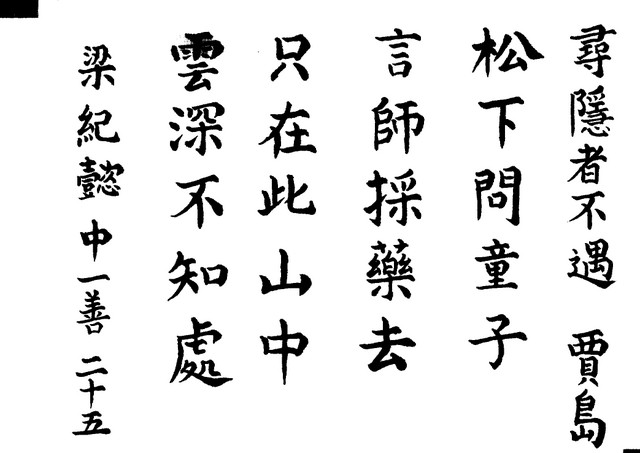 尋隱者不遇 賈島
松下問童子
言師採藥去
只在此山中
雲深不知處
梁紀懿 中一善 二十五